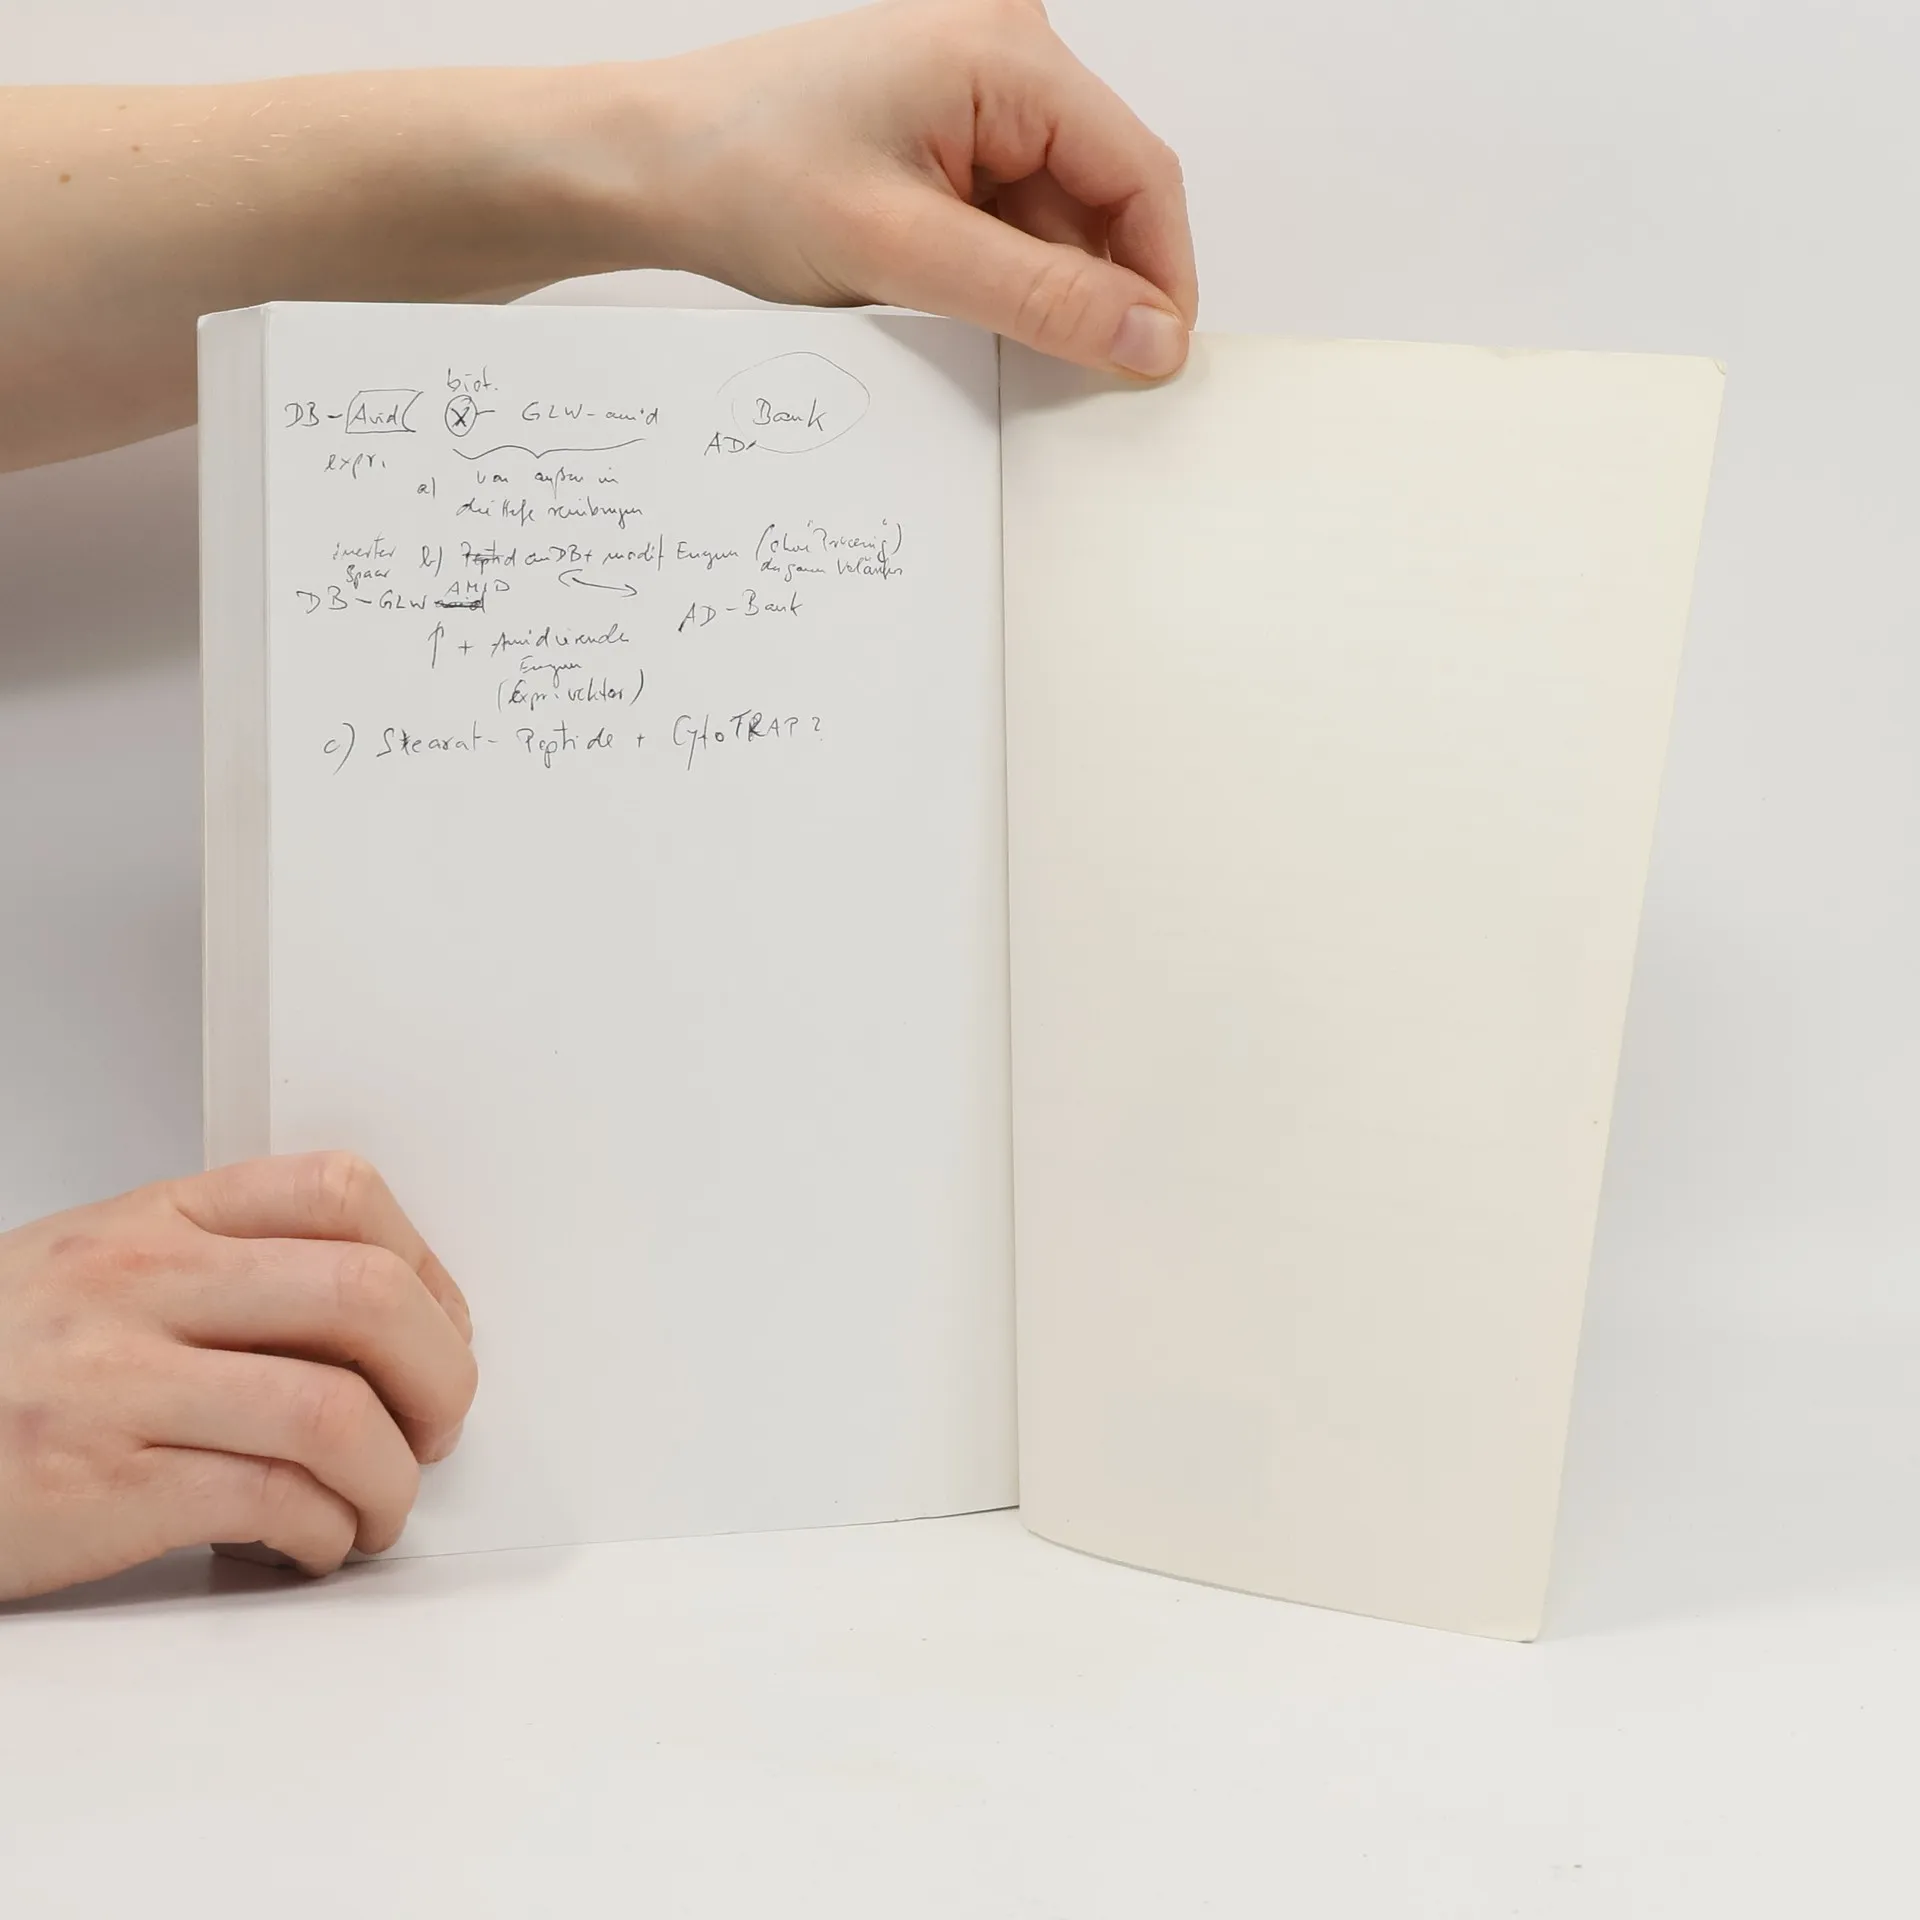 biot.
DB - Avid X - GLW-amid Bank
AD
expr.
a) von außen in
die Hefe reinbringen
inerter b) Peptid an DB + modif Enzym (ohne "Processing")
Spacer des ganzen Vorläufers
DB - GLW AMID
AD - Bank
↑ + Amidierende
Enzym
(Expr.vektor)
c) Stearat-Peptide + CytoTRAP?